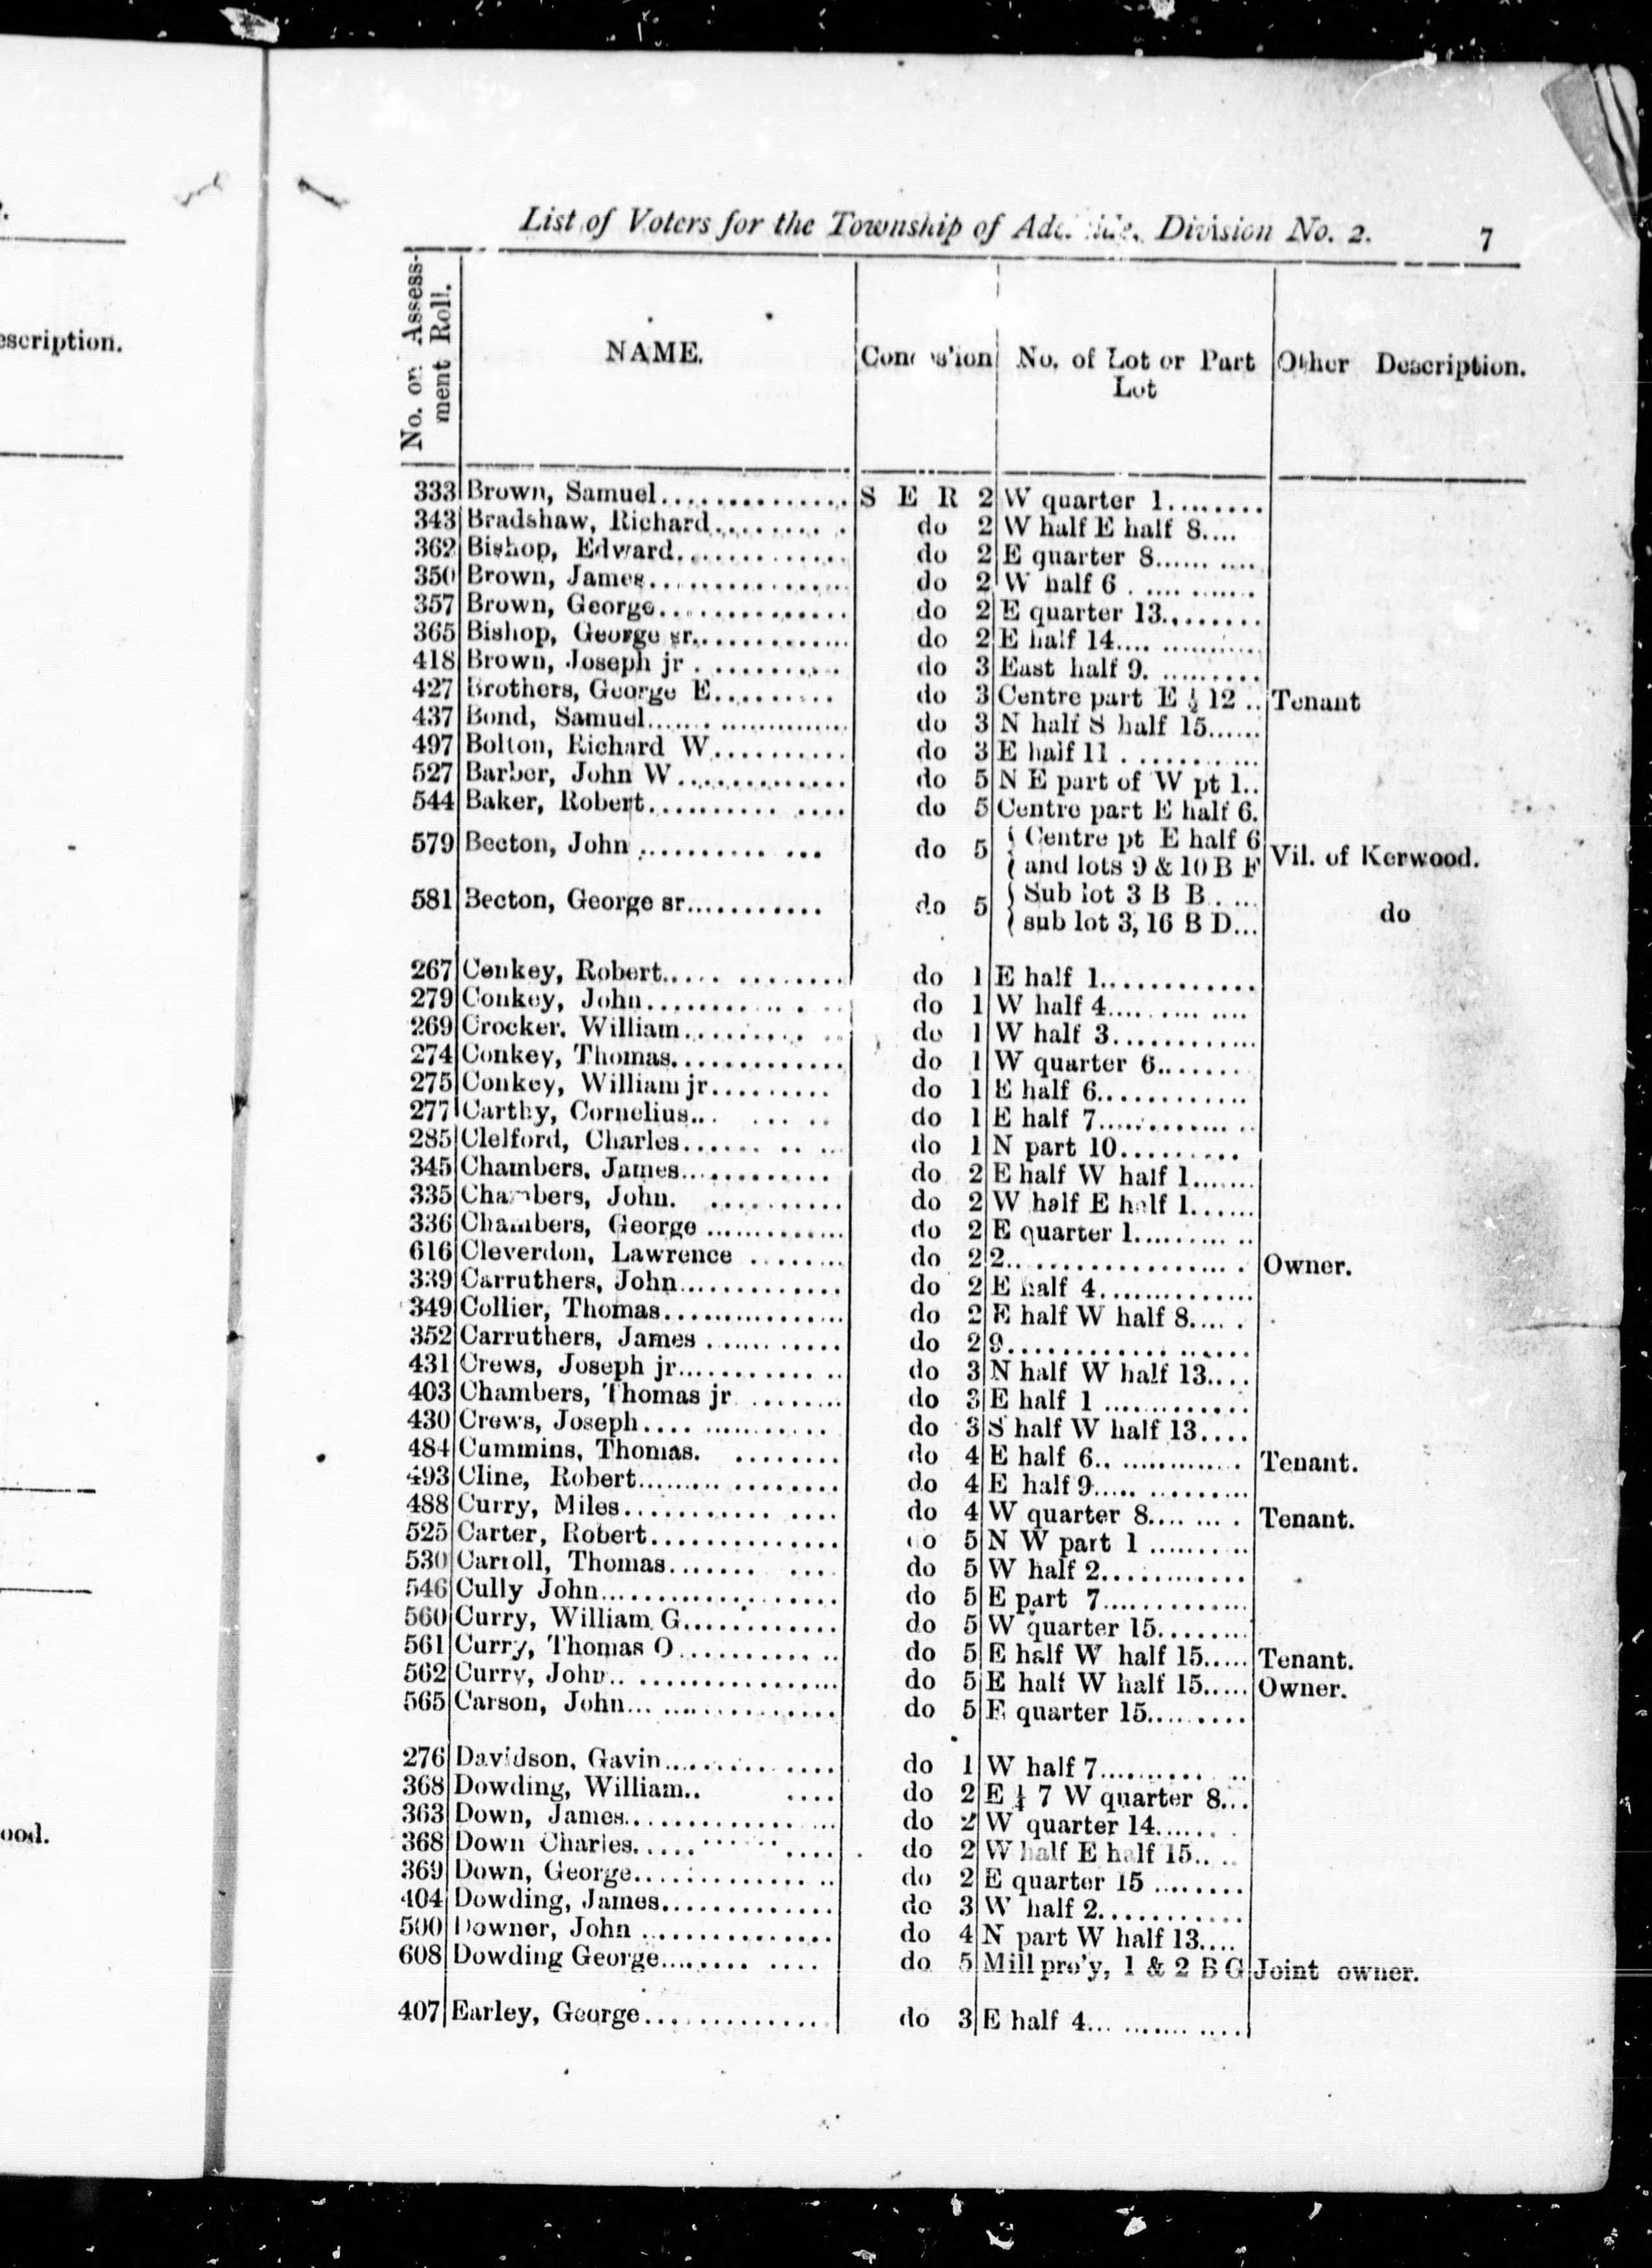 List of Voters for the Township of Adelaide, Division No. 2. 7
No. on Assessment Roll. NAME. Concession No. of Lot or Part Lot Other Description.
333 Brown, Samuel S E R 2 W quarter 1
343 Bradshaw, Richard do 2 W half E half 8
362 Bishop, Edward do 2 E quarter 8
350 Brown, James do 2 W half 6
357 Brown, George do 2 E quarter 13
365 Bishop, George sr do 2 E half 14
418 Brown, Joseph jr do 3 East half 9
427 Brothers, George E do 3 Centre part E ½ 12 Tenant
437 Bond, Samuel do 3 N half S half 15
497 Bolton, Richard W do 3 E half 11
527 Barber, John W do 5 N E part of W pt 1
544 Baker, Robert do 5 Centre part E half 6.
579 Becton, John do 5 { Centre pt E half 6 Vil. of Kerwood.
and lots 9 & 10 B F
581 Becton, George sr do 5 { Sub lot 3 B B do
sub lot 3, 16 B D
267 Conkey, Robert do 1 E half 1
279 Conkey, John do 1 W half 4
269 Crocker, William do 1 W half 3
274 Conkey, Thomas do 1 W quarter 6
275 Conkey, William jr do 1 E half 6
277 Carthy, Cornelius do 1 E half 7
285 Clelford, Charles do 1 N part 10
345 Chambers, James do 2 E half W half 1
335 Chambers, John. do 2 W half E half 1
336 Chambers, George do 2 E quarter 1
616 Cleverdon, Lawrence do 2 2 Owner.
339 Carruthers, John do 2 E half 4
349 Collier, Thomas do 2 E half W half 8
352 Carruthers, James do 2 9
431 Crews, Joseph jr do 3 N half W half 13
403 Chambers, Thomas jr do 3 E half 1
430 Crews, Joseph do 3 S half W half 13
484 Cummins, Thomas. do 4 E half 6 Tenant.
493 Cline, Robert do 4 E half 9
488 Curry, Miles do 4 W quarter 8 Tenant.
525 Carter, Robert do 5 N W part 1
530 Carroll, Thomas do 5 W half 2
546 Cully John do 5 E part 7
560 Curry, William G do 5 W quarter 15
561 Curry, Thomas O do 5 E half W half 15 Tenant.
562 Curry, John do 5 E half W half 15 Owner.
565 Carson, John do 5 E quarter 15
276 Davidson, Gavin do 1 W half 7
368 Dowding, William do 2 E ¼ 7 W quarter 8
363 Down, James do 2 W quarter 14
368 Down Charles do 2 W half E half 15
369 Down, George do 2 E quarter 15
404 Dowding, James do 3 W half 2
500 Downer, John do 4 N part W half 13
608 Dowding George do 5 Mill pro'y, 1 & 2 B G Joint owner.
407 Earley, George do 3 E half 4